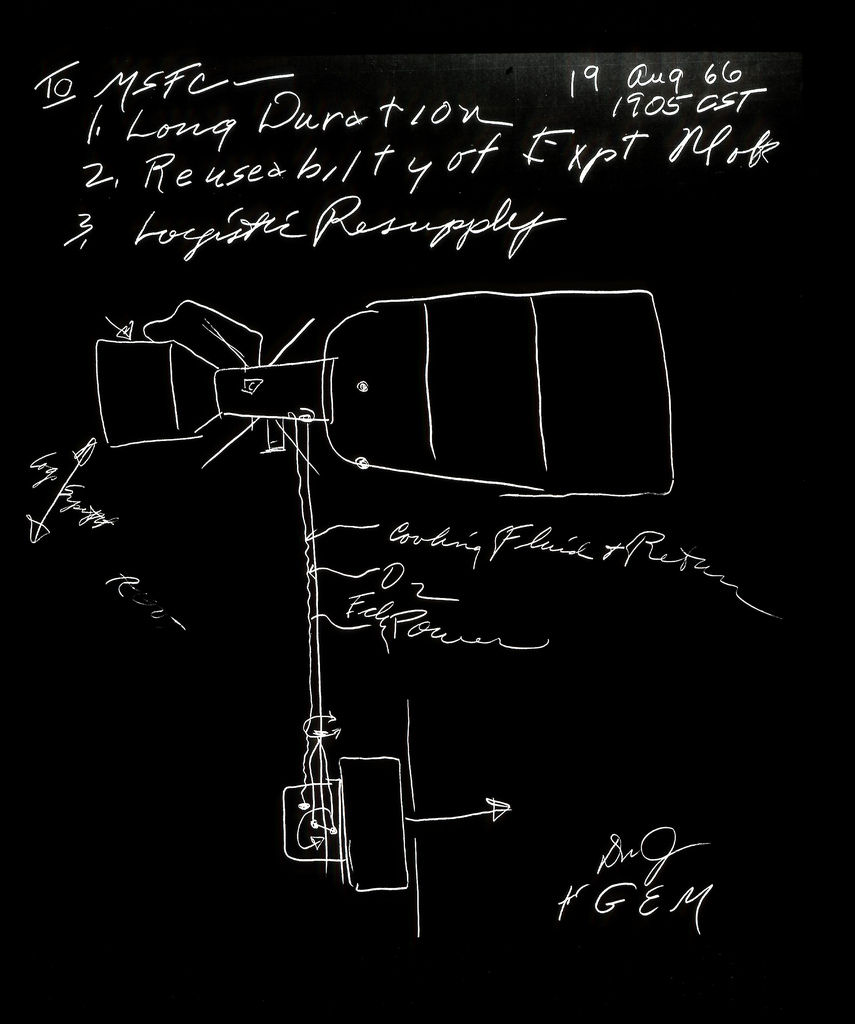 TO MSFC —
19 Aug 66
1905 CST
1. Long Duration
2. Reuseability of Expt Mods
3. Logistic Resupply
Log.
Cooling Fluid & Return
O2
Power
+ GEM